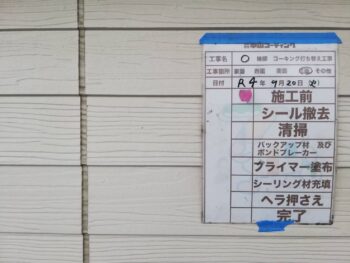 工事名 ○ 様邸 コーキング打ち替え工事
工事箇所 その他
日付 R4年9月20日(火)
施工前
シール撤去
清掃
バックアップ材 及び
ボンドブレーカー
プライマー塗布
シーリング材充填
ヘラ押さえ
完了